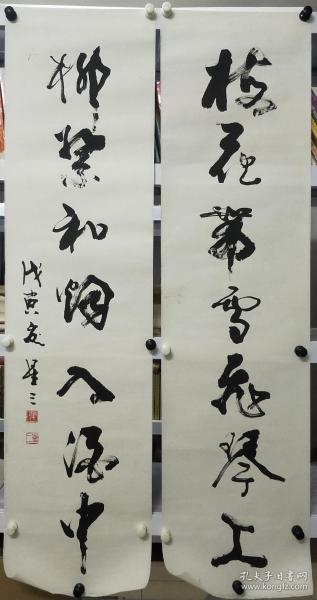 梅花帶雪飛琴上
柳絮和烟入酒中
戊寅夏
孔夫子旧书网